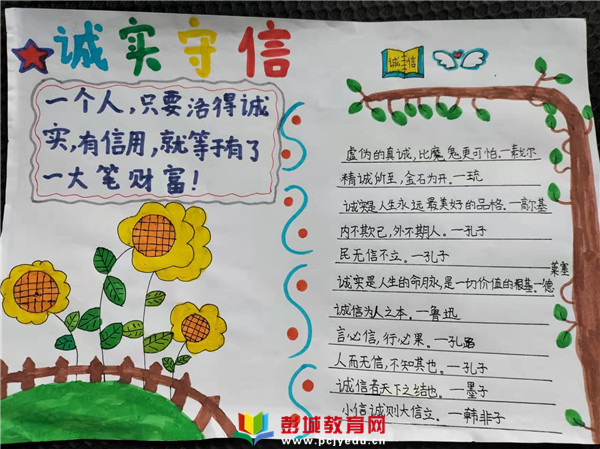 诚实守信
一个人，只要活得诚
实，有信用，就等于有了
一大笔财富！
诚信
虚伪的真诚，比魔鬼更可怕。—泰戈尔
精诚所至，金石为开。—王充
诚实是人生永远最美好的品格。—高尔基
内不欺己，外不期人。—孔子
民无信不立。—孔子
诚实是人生的命脉，是一切价值的根基—德
莱塞
诚信为人之本。—鲁迅
言必信，行必果。—孔子
人而无信，不知其也。—孔子
诚信者天下之结也。—墨子
小信诚则大信立。—韩非子
彭城教育网
www.pcjyedu.cn